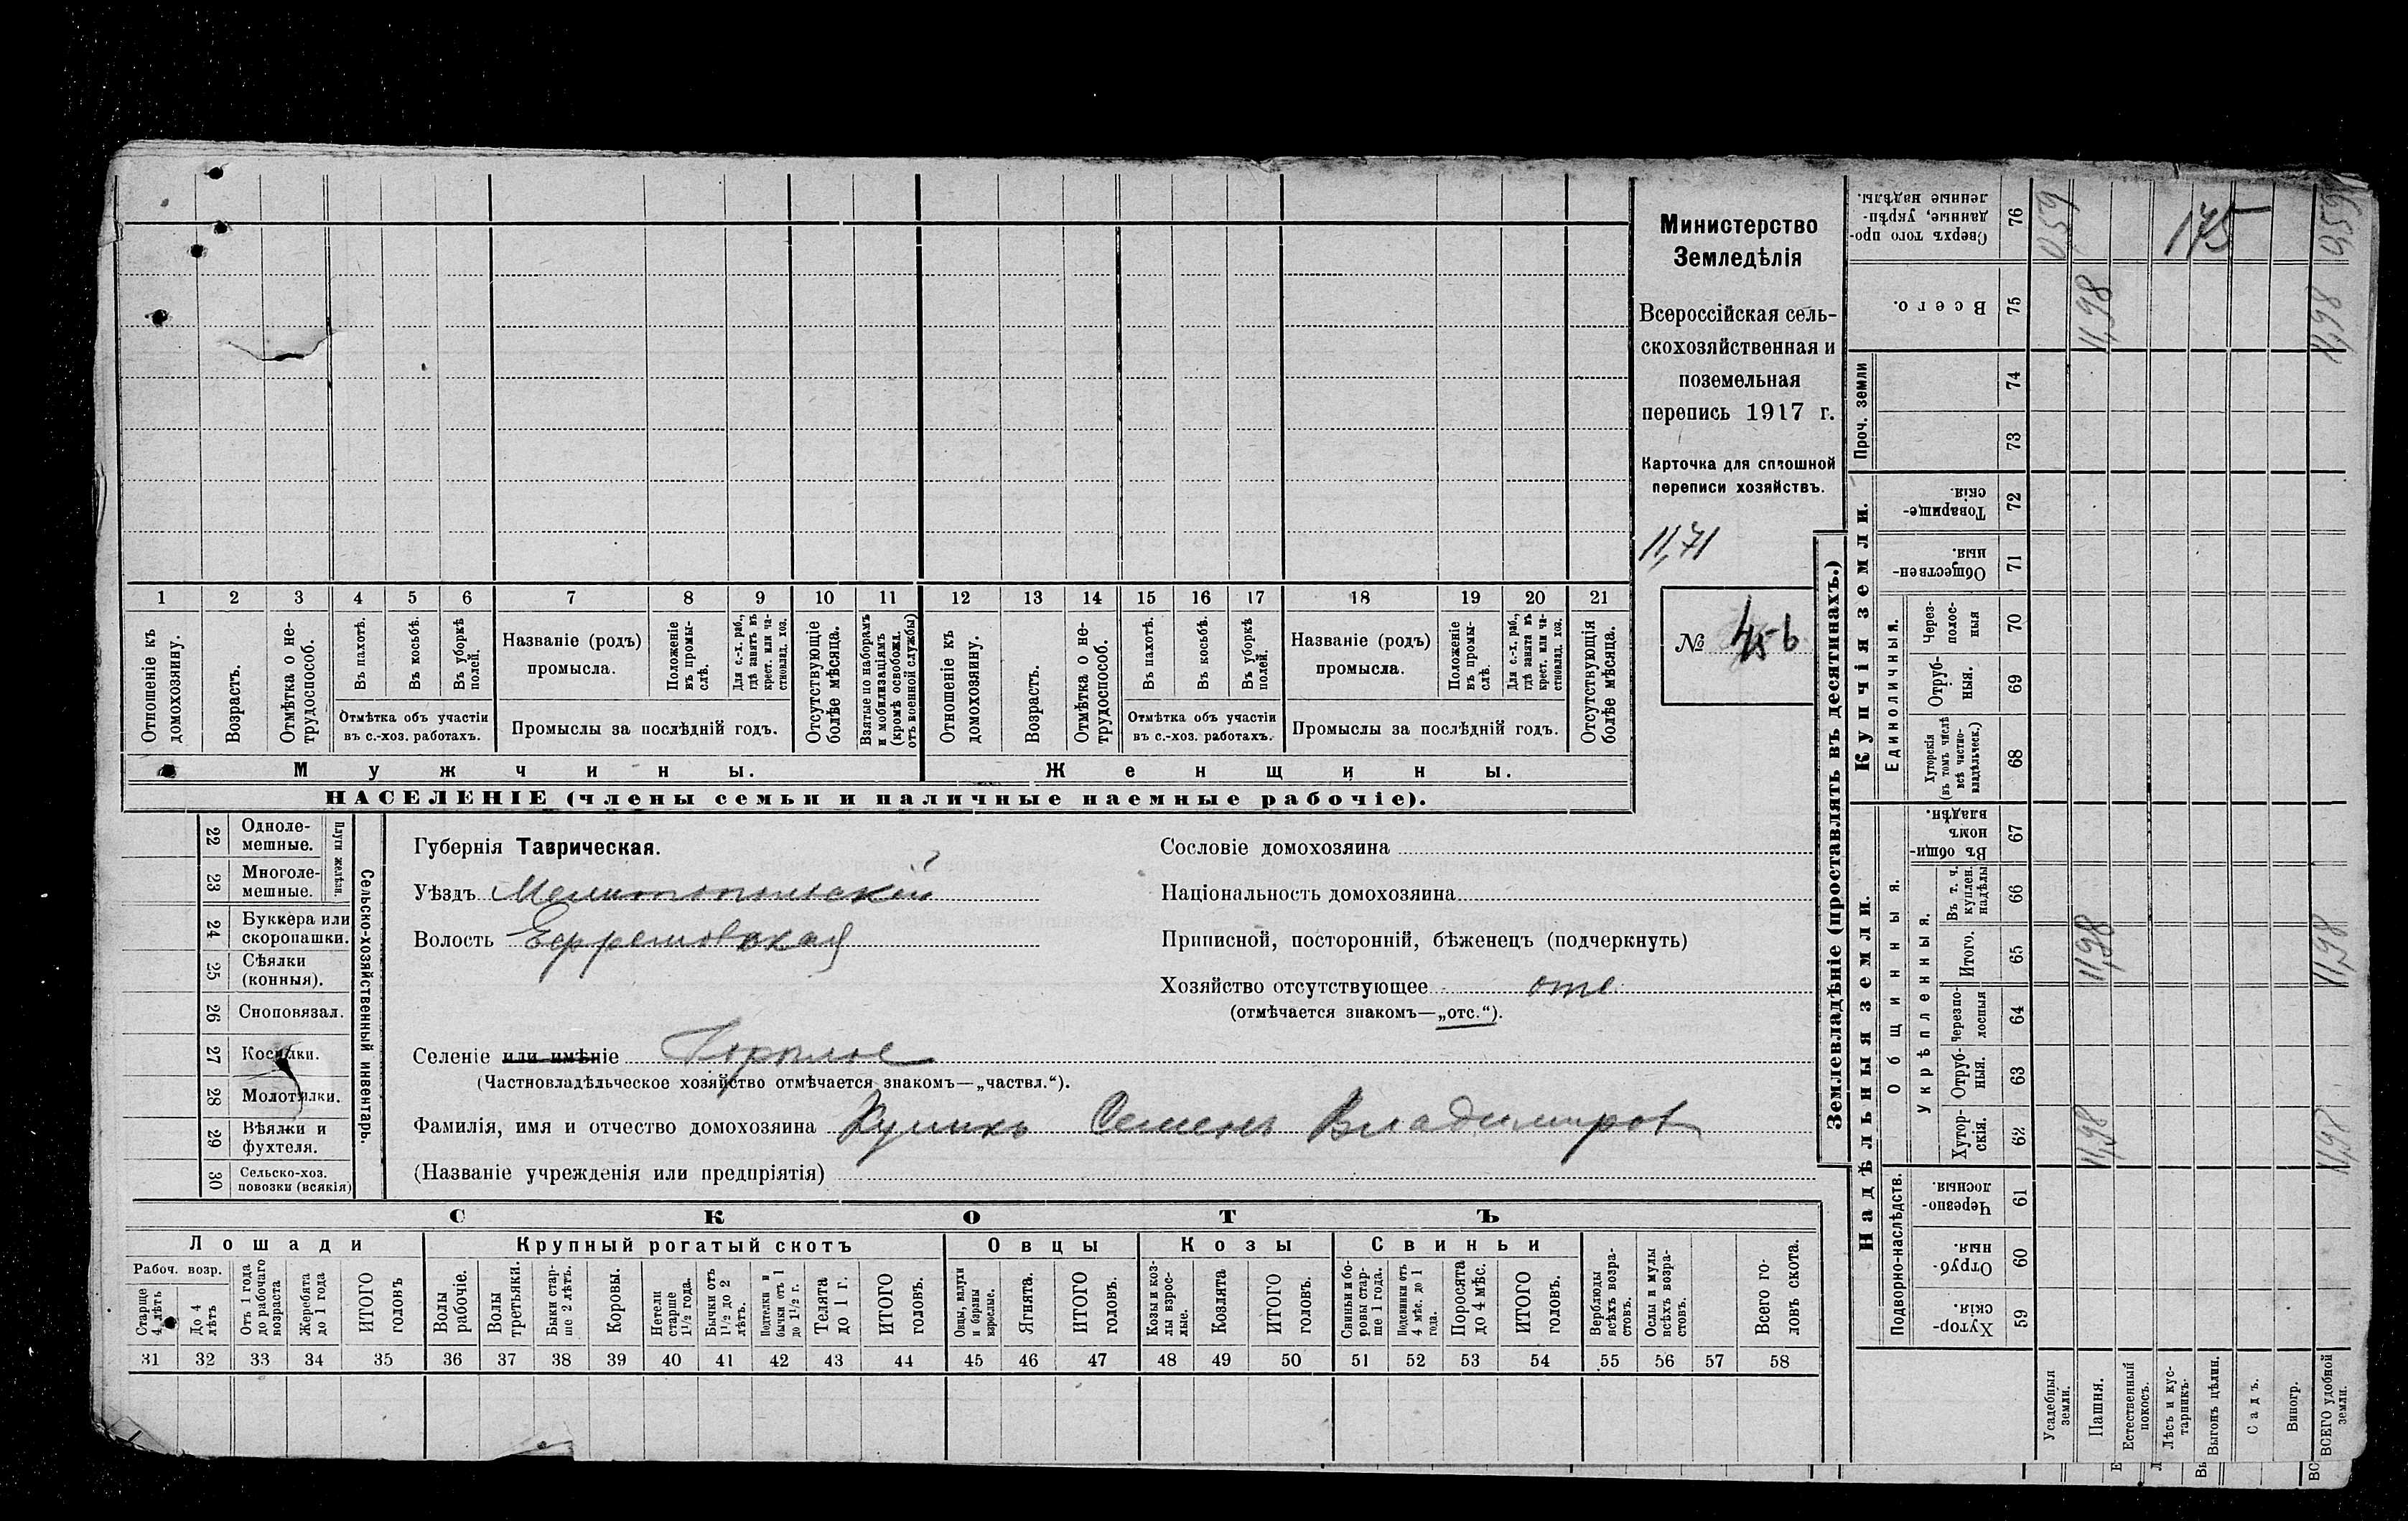 Министерство
Земледѣлія
Всероссійская сель-
скохозяйственная и
поземельная
перепись 1917 г.
Карточка для сплошной
переписи хозяйствъ.
11,71
№ 456
1 2 3 4 5 6 7 8 9 10 11 12 13 14 15 16 17 18 19 20 21
Отношеніе къ домохозяину.
Возрастъ.
Отмѣтка о не-трудоспособ.
Въ пахотѣ.
Въ косьбѣ.
Въ уборкѣ полей.
Отмѣтка объ участіи
въ с.-хоз. работахъ.
Названіе (родъ)
промысла.
Положеніе въ промы-слѣ.
Для с.-х. раб., гдѣ занятъ въ крест. или ча-стновлад. хоз.
Промыслы за послѣдній годъ.
Отсутствующіе болѣе мѣсяца.
Взятые по наборамъ и мобилизаціямъ (кромѣ освобожд. отъ военной службы)
Отношеніе къ домохозяину.
Возрастъ.
Отмѣтка о не-трудоспособ.
Въ пахотѣ.
Въ косьбѣ.
Въ уборкѣ полей.
Отмѣтка объ участіи
въ с.-хоз. работахъ.
Названіе (родъ)
промысла.
Положеніе въ промы-слѣ.
Для с.-х. раб., гдѣ занята въ крест. или ча-стновлад. хоз.
Промыслы за послѣдній годъ.
Отсутствующія болѣе мѣсяца.
Мужчины.
Женщины.
НАСЕЛЕНІЕ (члены семьи и наличные наемные рабочіе).
Сельско-хозяйственный инвентарь.
Плуги желѣзн.
22 Одноле-мешные.
23 Многоле-мешные.
24 Буккера или скоропашки.
25 Сѣялки (конныя).
26 Сноповязал.
27 Косилки.
28 Молотилки.
29 Вѣялки и фухтеля.
30 Сельско-хоз. повозки (всякія)
Губернія Таврическая.
Уѣздъ Мелитопольскій
Волость Ефремовская
Селеніе или имѣніе Горѣлое
(Частновладѣльческое хозяйство отмѣчается знакомъ—„частвл.“).
Фамилія, имя и отчество домохозяина Куликъ Семенъ Владимиров
(Названіе учрежденія или предпріятія)
Сословіе домохозяина
Національность домохозяина
Приписной, посторонній, бѣженецъ (подчеркнуть)
Хозяйство отсутствующее отс
(отмѣчается знакомъ—„отс.“).
СКОТЪ
Лошади
Крупный рогатый скотъ
Овцы
Козы
Свиньи
Рабоч. возр.
Старше 4 лѣтъ
До 4 лѣтъ
Отъ 1 года до рабочаго возраста
Жеребята до 1 года
ИТОГО головъ
Волы рабочіе.
Волы третьяки.
Быки стар-ше 2 лѣтъ.
Коровы.
Нетели старше 1 1/2 года.
Бычки отъ 1 1/2 до 2 лѣтъ.
Подтелки и бычки отъ 1 до 1 1/2 г.
Телята до 1 г.
ИТОГО головъ.
Овцы, валухи и бараны взрослые.
Ягнята.
ИТОГО головъ.
Козы и коз-лы взрос-лые.
Козлята
ИТОГО головъ.
Свиньи и бо-ровы стар-ше 1 года.
Подсвинки отъ 4 мѣс. до 1 года.
Поросята до 4 мѣс.
ИТОГО головъ.
Верблюды всѣхъ возра-стовъ.
Ослы и мулы всѣхъ возра-стовъ.
Всего го-ловъ скота.
31 32 33 34 35 36 37 38 39 40 41 42 43 44 45 46 47 48 49 50 51 52 53 54 55 56 57 58
Землевладѣніе (проставлять въ десятинахъ.)
Надѣльныя земли.
Купчія земли.
Проч. земли
Подворно-наслѣдств.
Общинныя.
Укрѣпленныя.
Единоличныя.
Хутор-скія. 59
Отруб-ныя. 60
Черезпо-лосныя. 61
Хутор-скія. 62
Отруб-ныя. 63
Черезпо-лосныя 64
Итого. 65
Въ т. ч. куплен. надѣлы 66
Въ общи-номъ владѣн. 67
Хуторскія (въ томъ числѣ всѣ частно-владѣльческ.) 68
Отруб-ныя. 69
Через-полос-ныя 70
Обществен-ныя. 71
Товарище-скія. 72
73
74
Всего. 75
Сверхъ того про-данные, укрѣп-ленные надѣлы. 76
Усадебныя земли. 0,59
Пашня. 11,98 11,98 11,98
Естественный покосъ.
Лѣсъ и кус-тарникъ.
Выгонъ цѣлин.
Садъ.
Виногр.
ВСЕГО удобной земли. 11,98 11,98 11,98 0,59
175